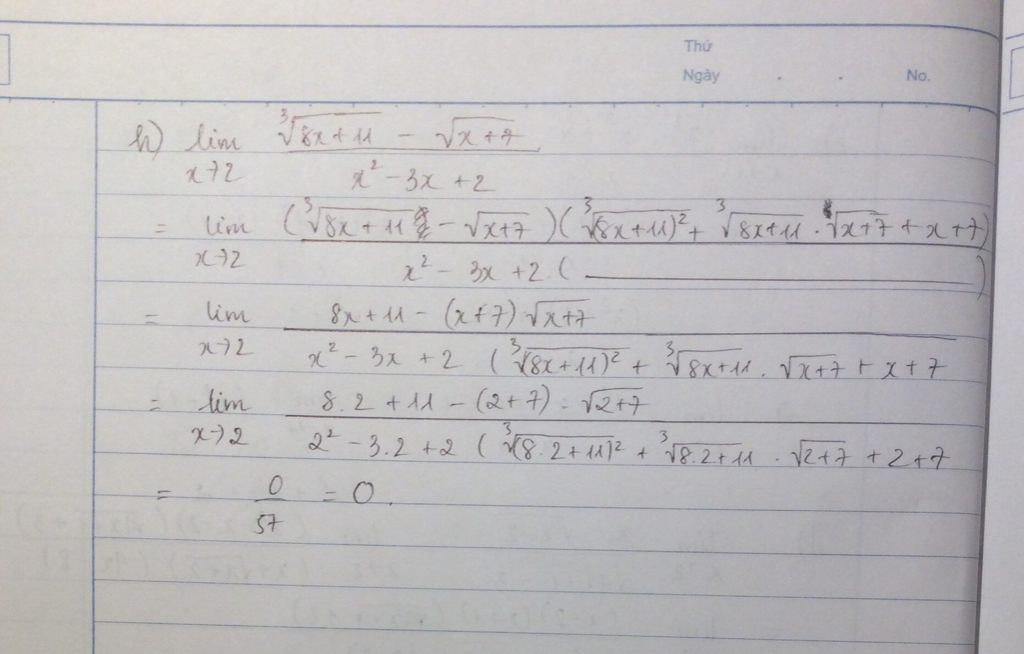 Thứ
Ngày . . No.
h) lim ∛(8x+11) − √(x+7)
x→2 x² − 3x + 2
= lim (∛(8x+11) − √(x+7))(∛(8x+11)² + ∛(8x+11) . √(x+7) + x+7)
x→2 x² − 3x + 2 ( ______ )
= lim 8x+11 − (x+7) √(x+7)
x→2 x² − 3x + 2 (∛(8x+11)² + ∛(8x+11) . √(x+7) + x + 7
= lim 8.2 + 11 − (2+7) . √(2+7)
x→2 2² − 3.2 + 2 (∛(8.2+11)² + ∛(8.2+11) . √(2+7) + 2+7
= 0/57 = 0.